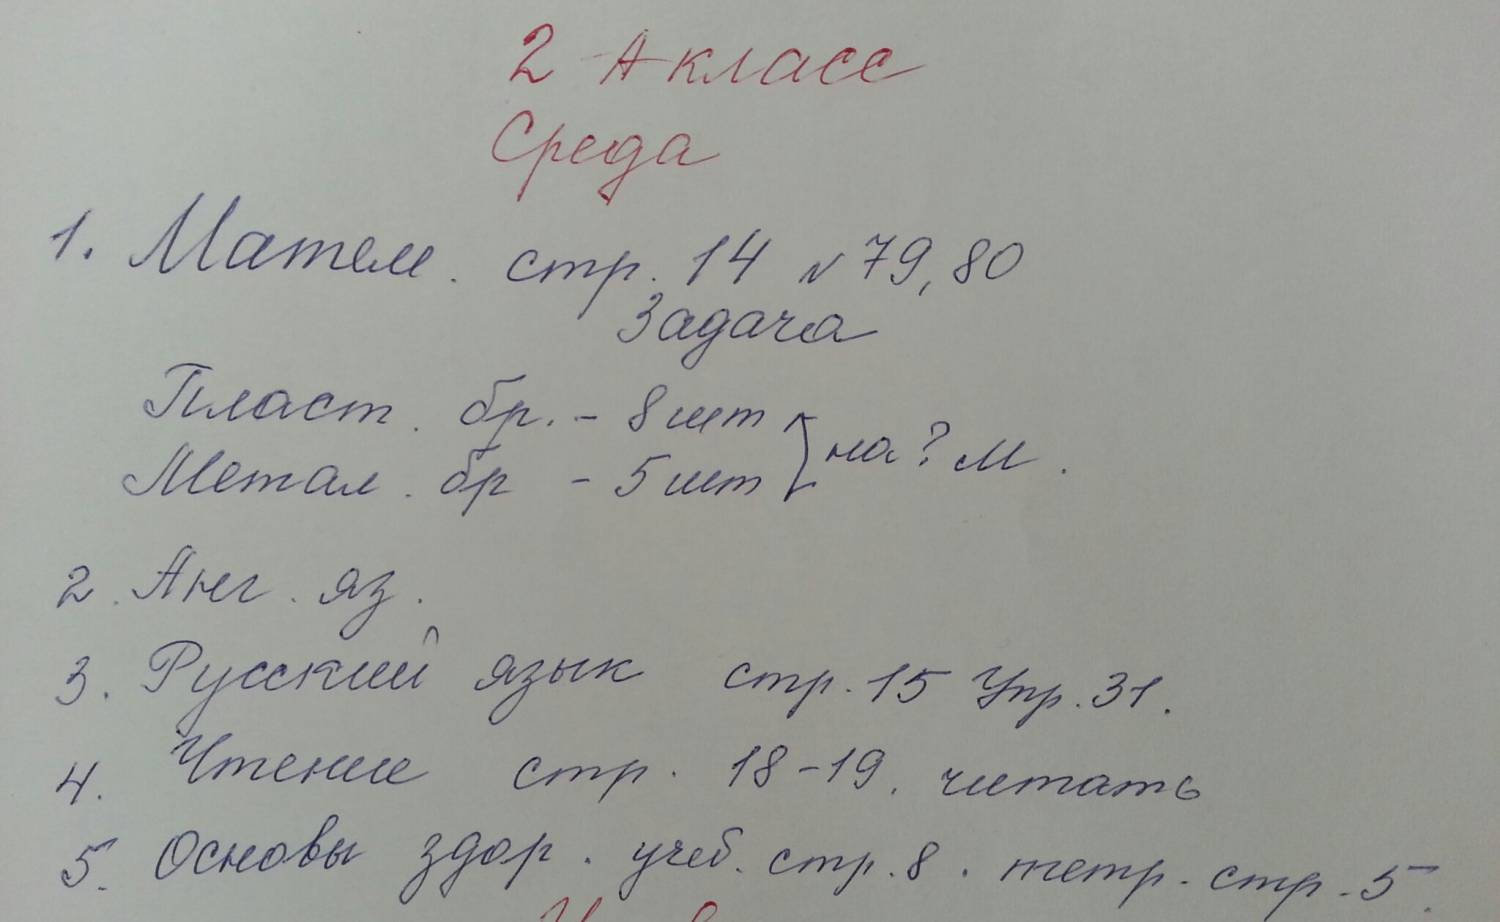 2 А класс
Среда
1. Матем. стр. 14 № 79, 80
Задача
Пласт. бр. - 8 шт
Метал. бр - 5 шт } на ? м.
2. Анг. яз.
3. Русский язык стр. 15 Упр. 31.
4. Чтение стр. 18-19. читать
5. Основы здор. учеб. стр. 8. тетр. стр. 5.